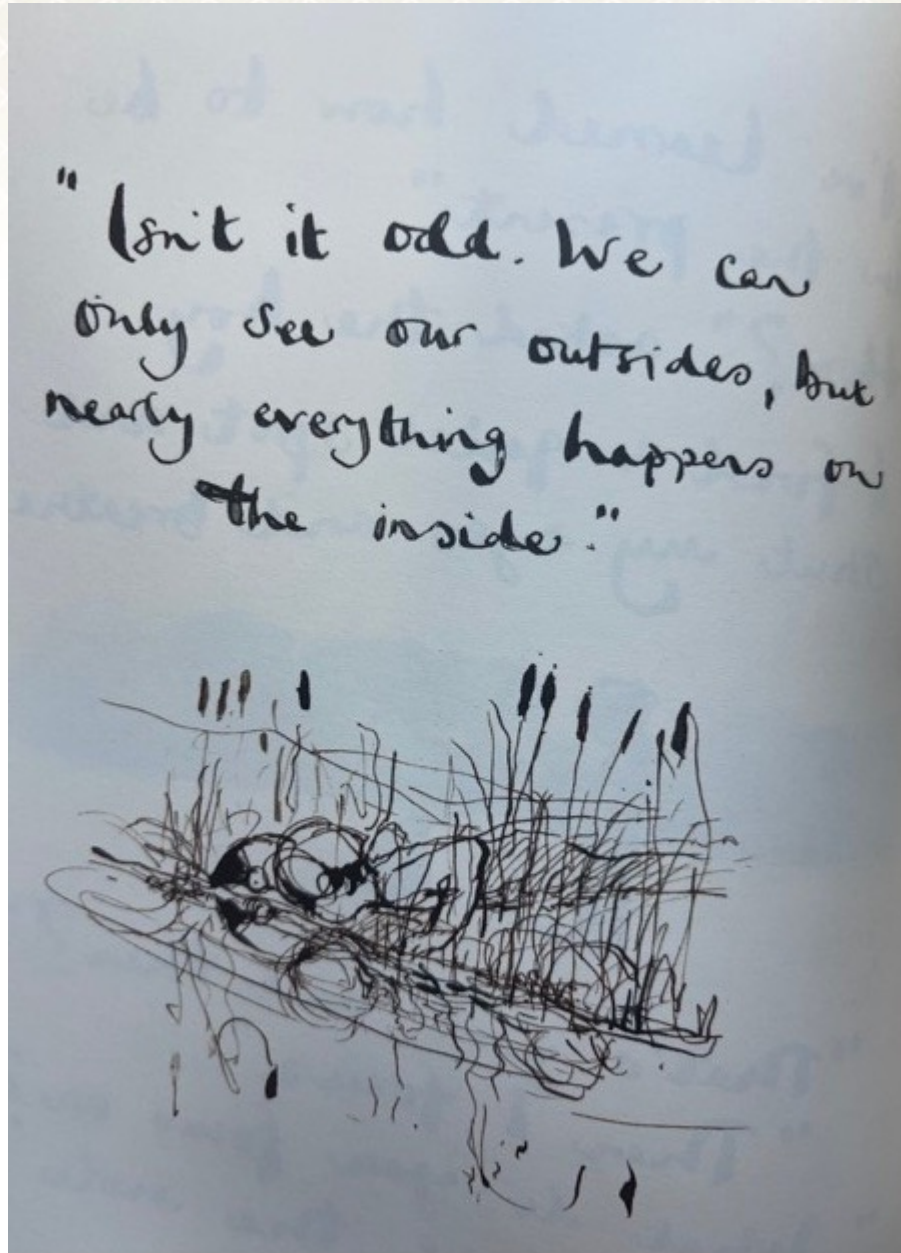 "Isn't it odd. We can
only see our outsides, but
nearly everything happens on
the inside."